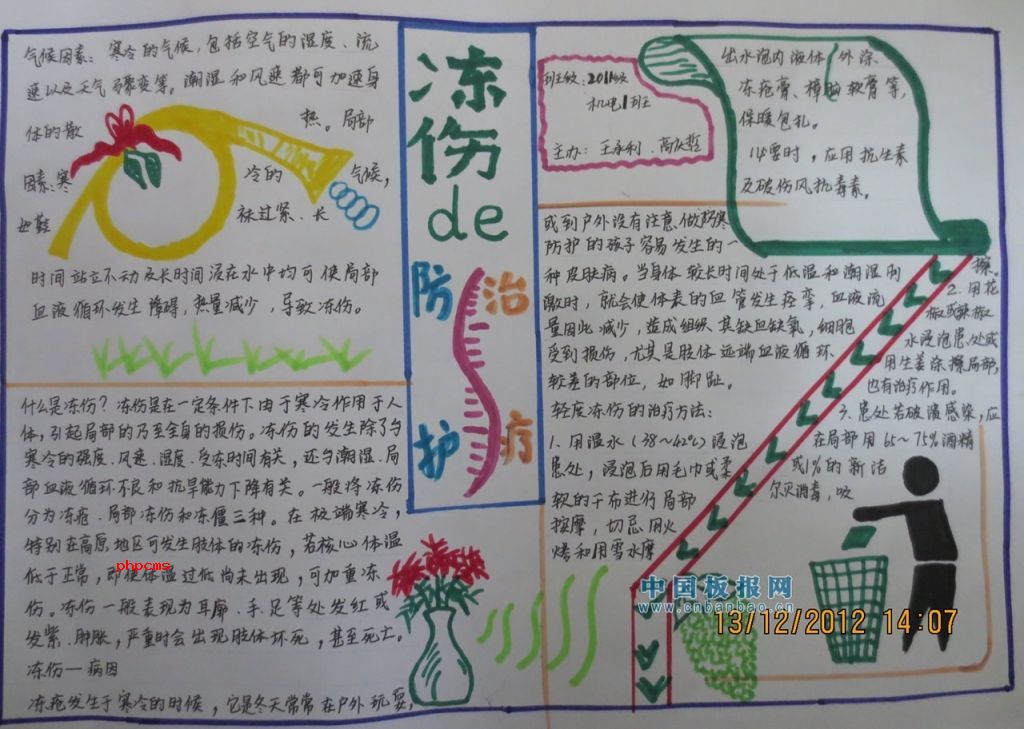 气候因素：寒冷的气候，包括空气的湿度、流
速以及天气骤变等。潮湿和风速都可加速身
体的散
热。局部
因素：寒
冷的
气候，
如鞋
袜过紧、长
时间站立不动及长时间浸在水中均可使局部
血液循环发生障碍，热量减少，导致冻伤。
什么是冻伤？冻伤是在一定条件下由于寒冷作用于人
体，引起局部的乃至全身的损伤。冻伤的发生除了与
寒冷的强度、风速、湿度、受冻时间有关，还与潮湿、局
部血液循环不良和抗旱能力下降有关。一般将冻伤
分为冻疮、局部冻伤和冻僵三种。在极端寒冷，
特别在高原地区可发生肢体的冻伤，若核心体温
低于正常，即使体温过低尚未出现，可加重冻
伤。冻伤一般表现为耳廓、手、足等处发红或
发紫、肿胀，严重时会出现肢体坏死，甚至死亡。
冻伤—病因
冻疮发生于寒冷的时候，它是冬天常常在户外玩耍，
phpcms
冻
伤
de
防治
护疗
班级：2011级
机电1班
主办：王永利、高
出水泡内液体外涂
冻疮膏、樟脑软膏等，
保暖包扎。
必要时，应用抗生素
及破伤风抗毒素。
或到户外没有注意做防寒
防护的孩子容易发生的一
种皮肤病。当身体较长时间处于低温和潮湿刺
激时，就会使体表的血管发生痉挛，血液流
量因此减少，造成组织缺血缺氧，细胞
受到损伤，尤其是肢体远端血液循环
较差的部位，如脚趾。
轻度冻伤的治疗方法：
1. 用温水（38～42℃）浸泡
患处，浸泡后用毛巾或柔
软的干布进行局部
按摩，切忌用火
烤和用雪水摩
擦。
2. 用花
椒或辣椒
水浸泡患处或
用生姜涂擦局部，
也有治疗作用。
3. 患处若破溃感染，应
在局部用65～75%酒精
或1%的新洁
尔灭消毒，吸
中国板报网
www.cnbanbao.cn
13/12/2012 14:07